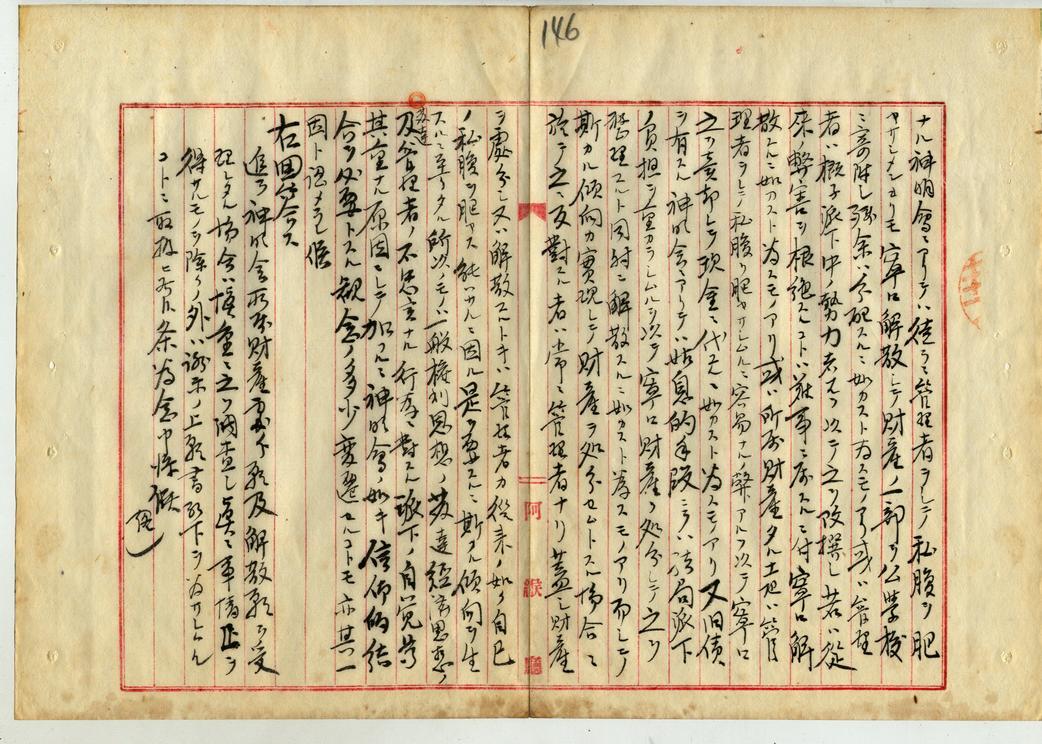 146
ナル神明會ニアリテハ徒ラニ管理者ヲシテ私腹ヲ肥
ヤサシメンヨリモ寧ロ解散シテ財産ノ一部ヲ公学校
ニ寄附シ残余ハ分配スルニ如カストナスモノアリ或ハ管理
者ハ概子派下中ノ勢力者ナルヲ以テ之ヲ改撰シ若ハ從
来ノ弊害ヲ根絶スルコトハ難事ニ属スルニ付寧ロ解
散スルニ如カストナスモノアリ或ハ所属財産タル土地ハ管
理者ヲシテ私腹ヲ肥ヤサシムルニ容易ナルノ弊アルヲ以テ寧ロ
之ヲ賣却シテ現金ニ代フルニ如カストナスモノアリ又旧債
ヲ有スル神明会ニアリテハ姑息的手段ニテハ結局派下
ノ負担ヲ重カラシムルヲ以テ寧ロ財産ヲ処分シテ之ヲ
整理スルト同時ニ解散スルニ如カストナスモノアリ而シテ
斯カル傾向カ実現シテ財産ヲ処分セムトスル場合ニ
於テ之ニ反對スル者ハ常ニ管理者ナリ蓋シ財産
阿緱廳
ヲ處分シ又ハ解散スルトキハ管理者カ従来ノ如ク自己
ノ私腹ヲ肥ヤス能ハサルニ因ル是ヲ要スルニ斯カル傾向ヲ生
スルニ至リタル所以ノモノハ一般権利思想ノ発達経済思想ノ
発達
及管理者ノ不忠実ナル行為ニ對スル派下ノ自覚等
其重ナル原因ニシテ加フルニ神明會ノ如キ信仰的結
合ヲ必要トスル観念ノ多少変遷セルコトモ亦其一
因ト認メラレ候
右回答ス
追テ神明会所属財産処分願及解散願ヲ受
理シタル場合ハ慎重ニ之ヲ調査シ真ニ事情止ヲ
得サルモノヲ除クノ外ハ説示ノ上願書却下ヲ為サシムル
コトニ取扱ヒ居候条為念申添候